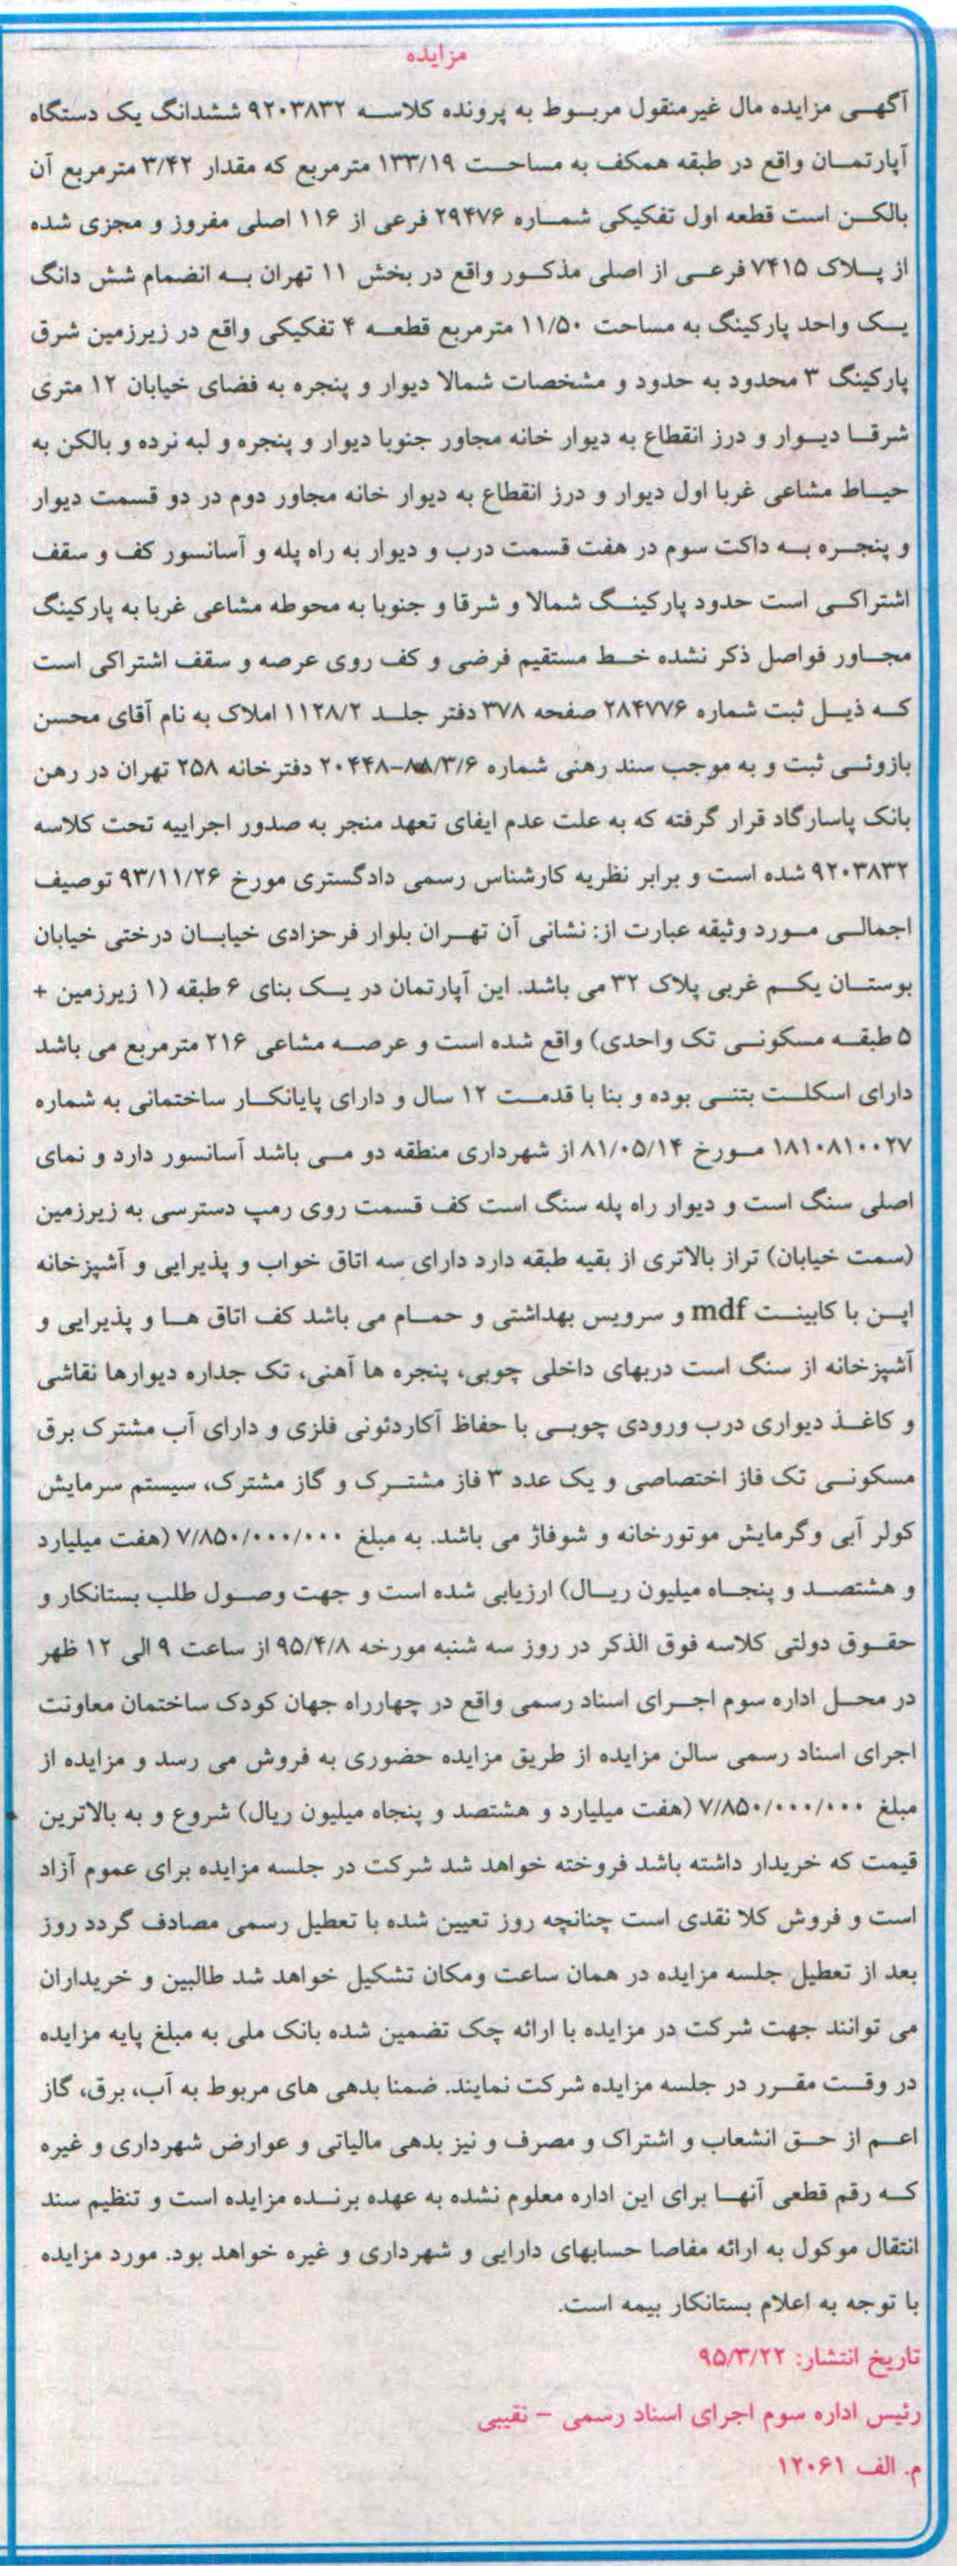 مزایده
آگهی مزایده مال غیرمنقول مربوط به پرونده کلاسه ۹۲۰۳۸۳۲ ششدانگ یک دستگاه
آپارتمان واقع در طبقه همکف به مساحت ۱۳۳/۱۹ مترمربع که مقدار ۳/۴۲ مترمربع آن
بالکن است قطعه اول تفکیکی شماره ۲۹۴۷۶ فرعی از ۱۱۶ اصلی مفروز و مجزی شده
از پلاک ۷۴۱۵ فرعی از اصلی مذکور واقع در بخش ۱۱ تهران به انضمام شش دانگ
یک واحد پارکینگ به مساحت ۱۱/۵۰ مترمربع قطعه ۴ تفکیکی واقع در زیرزمین شرق
پارکینگ ۳ محدود به حدود و مشخصات شمالا دیوار و پنجره به فضای خیابان ۱۲ متری
شرقا دیوار و درز انقطاع به دیوار خانه مجاور جنوبا دیوار و پنجره و لبه نرده و بالکن به
حیاط مشاعی غربا اول دیوار و درز انقطاع به دیوار خانه مجاور دوم در دو قسمت دیوار
و پنجره به داکت سوم در هفت قسمت درب و دیوار به راه پله و آسانسور کف و سقف
اشتراکی است حدود پارکینگ شمالا و شرقا و جنوبا به محوطه مشاعی غربا به پارکینگ
مجاور فواصل ذکر نشده خط مستقیم فرضی و کف روی عرصه و سقف اشتراکی است
که ذیل ثبت شماره ۲۸۴۷۷۶ صفحه ۳۷۸ دفتر جلد ۱۱۲۸/۲ املاک به نام آقای محسن
بازوئی ثبت و به موجب سند رهنی شماره ۲۰۴۴۸-۸۸/۳/۶ دفترخانه ۲۵۸ تهران در رهن
بانک پاسارگاد قرار گرفته که به علت عدم ایفای تعهد منجر به صدور اجراییه تحت کلاسه
۹۲۰۳۸۳۲ شده است و برابر نظریه کارشناس رسمی دادگستری مورخ ۹۳/۱۱/۲۶ توصیف
اجمالی مورد وثیقه عبارت از: نشانی آن تهران بلوار فرحزادی خیابان درختی خیابان
بوستان یکم غربی پلاک ۳۲ می باشد. این آپارتمان در یک بنای ۶ طبقه (۱ زیرزمین +
۵ طبقه مسکونی تک واحدی) واقع شده است و عرصه مشاعی ۲۱۶ مترمربع می باشد
دارای اسکلت بتنی بوده و بنا با قدمت ۱۲ سال و دارای پایانکار ساختمانی به شماره
۱۸۱۰۸۱۰۰۲۷ مورخ ۸۱/۰۵/۱۴ از شهرداری منطقه دو می باشد آسانسور دارد و نمای
اصلی سنگ است و دیوار راه پله سنگ است کف قسمت روی رمپ دسترسی به زیرزمین
(سمت خیابان) تراز بالاتری از بقیه طبقه دارد دارای سه اتاق خواب و پذیرایی و آشپزخانه
اپن با کابینت mdf و سرویس بهداشتی و حمام می باشد کف اتاق ها و پذیرایی و
آشپزخانه از سنگ است دربهای داخلی چوبی، پنجره ها آهنی، تک جداره دیوارها نقاشی
و کاغذ دیواری درب ورودی چوبی با حفاظ آکاردئونی فلزی و دارای آب مشترک برق
مسکونی تک فاز اختصاصی و یک عدد ۳ فاز مشترک و گاز مشترک، سیستم سرمایش
کولر آبی وگرمایش موتورخانه و شوفاژ می باشد. به مبلغ ۷/۸۵۰/۰۰۰/۰۰۰ (هفت میلیارد
و هشتصد و پنجاه میلیون ریال) ارزیابی شده است و جهت وصول طلب بستانکار و
حقوق دولتی کلاسه فوق الذکر در روز سه شنبه مورخه ۹۵/۴/۸ از ساعت ۹ الی ۱۲ ظهر
در محل اداره سوم اجرای اسناد رسمی واقع در چهارراه جهان کودک ساختمان معاونت
اجرای اسناد رسمی سالن مزایده از طریق مزایده حضوری به فروش می رسد و مزایده از
مبلغ ۷/۸۵۰/۰۰۰/۰۰۰ (هفت میلیارد و هشتصد و پنجاه میلیون ریال) شروع و به بالاترین
قیمت که خریدار داشته باشد فروخته خواهد شد شرکت در جلسه مزایده برای عموم آزاد
است و فروش کلا نقدی است چنانچه روز تعیین شده با تعطیل رسمی مصادف گردد روز
بعد از تعطیل جلسه مزایده در همان ساعت ومکان تشکیل خواهد شد طالبین و خریداران
می توانند جهت شرکت در مزایده با ارائه چک تضمین شده بانک ملی به مبلغ پایه مزایده
در وقت مقرر در جلسه مزایده شرکت نمایند. ضمنا بدهی های مربوط به آب، برق، گاز
اعم از حق انشعاب و اشتراک و مصرف و نیز بدهی مالیاتی و عوارض شهرداری و غیره
که رقم قطعی آنها برای این اداره معلوم نشده به عهده برنده مزایده است و تنظیم سند
انتقال موکول به ارائه مفاصا حسابهای دارایی و شهرداری و غیره خواهد بود. مورد مزایده
با توجه به اعلام بستانکار بیمه است.
تاریخ انتشار: ۹۵/۳/۲۲
رئیس اداره سوم اجرای اسناد رسمی – نقیبی
م. الف ۱۲۰۶۱